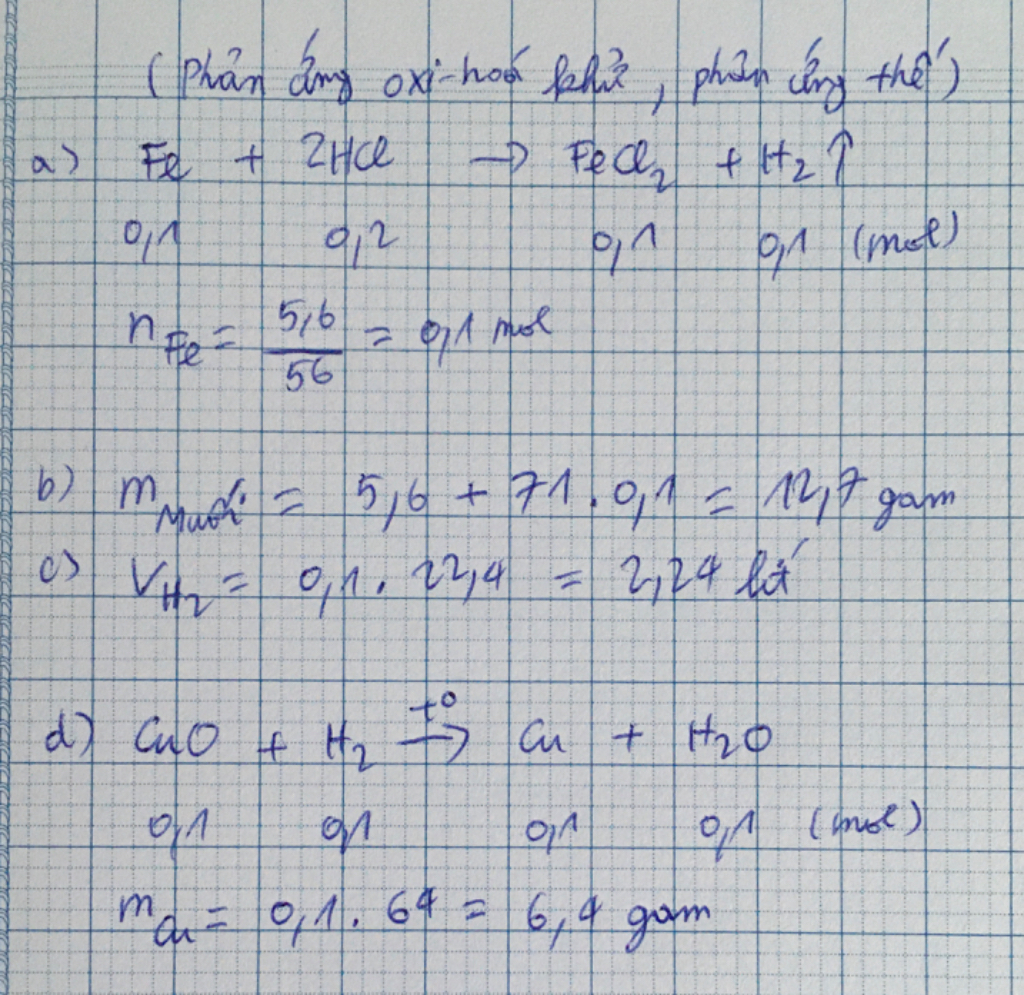 (Phản ứng oxi-hoá khử, phản ứng thế)
a) Fe + 2HCl → FeCl₂ + H₂↑
0,1 0,2 0,1 0,1 (mol)
n_Fe = 5,6/56 = 0,1 mol
b) m_Muối = 5,6 + 71.0,1 = 12,7 gam
c) V_H₂ = 0,1.22,4 = 2,24 lít
d) CuO + H₂ →(t°) Cu + H₂O
0,1 0,1 0,1 0,1 (mol)
m_Cu = 0,1.64 = 6,4 gam